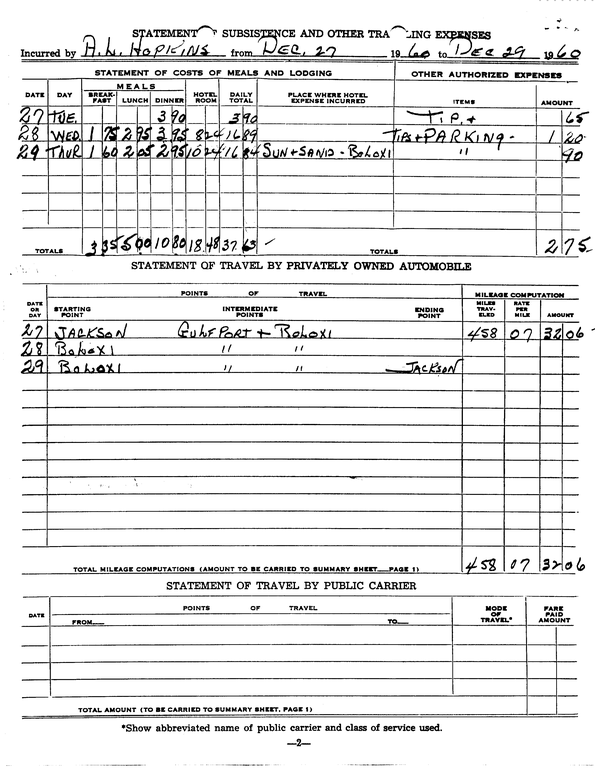 STATEMENT OF SUBSISTENCE AND OTHER TRA LING EXPENSES
Incurred by A.L. HOPKINS from DEC. 27 1960 to DEC 29 1960
STATEMENT OF COSTS OF MEALS AND LODGING OTHER AUTHORIZED EXPENSES
MEALS
DATE DAY BREAK-FAST LUNCH DINNER HOTEL ROOM DAILY TOTAL PLACE WHERE HOTEL EXPENSE INCURRED ITEMS AMOUNT
27 TUE. 3 90 3 90 Tip + 65
28 WED. 1 75 2 95 3 95 8 24 16 89 Tips + PARKING - 1 20
29 THUR 1 60 2 05 2 95 10 24 16 84 SUN + SAND - BOLOXI " 90
TOTALS 3 35 5 00 10 80 18 48 37 63 TOTALS 2 75
STATEMENT OF TRAVEL BY PRIVATELY OWNED AUTOMOBILE
POINTS OF TRAVEL MILEAGE COMPUTATION
DATE OR DAY STARTING POINT INTERMEDIATE POINTS ENDING POINT MILES TRAV-ELED RATE PER MILE AMOUNT
27 JACKSON GULFPORT + BOLOXI 458 07 32 06
28 BOLOXI " "
29 BOLOXI " " JACKSON
TOTAL MILEAGE COMPUTATIONS (AMOUNT TO BE CARRIED TO SUMMARY SHEET PAGE 1) 458 07 32 06
STATEMENT OF TRAVEL BY PUBLIC CARRIER
DATE POINTS OF TRAVEL MODE OF TRAVEL* FARE PAID AMOUNT
FROM TO
TOTAL AMOUNT (TO BE CARRIED TO SUMMARY SHEET, PAGE 1)
*Show abbreviated name of public carrier and class of service used.
—2—